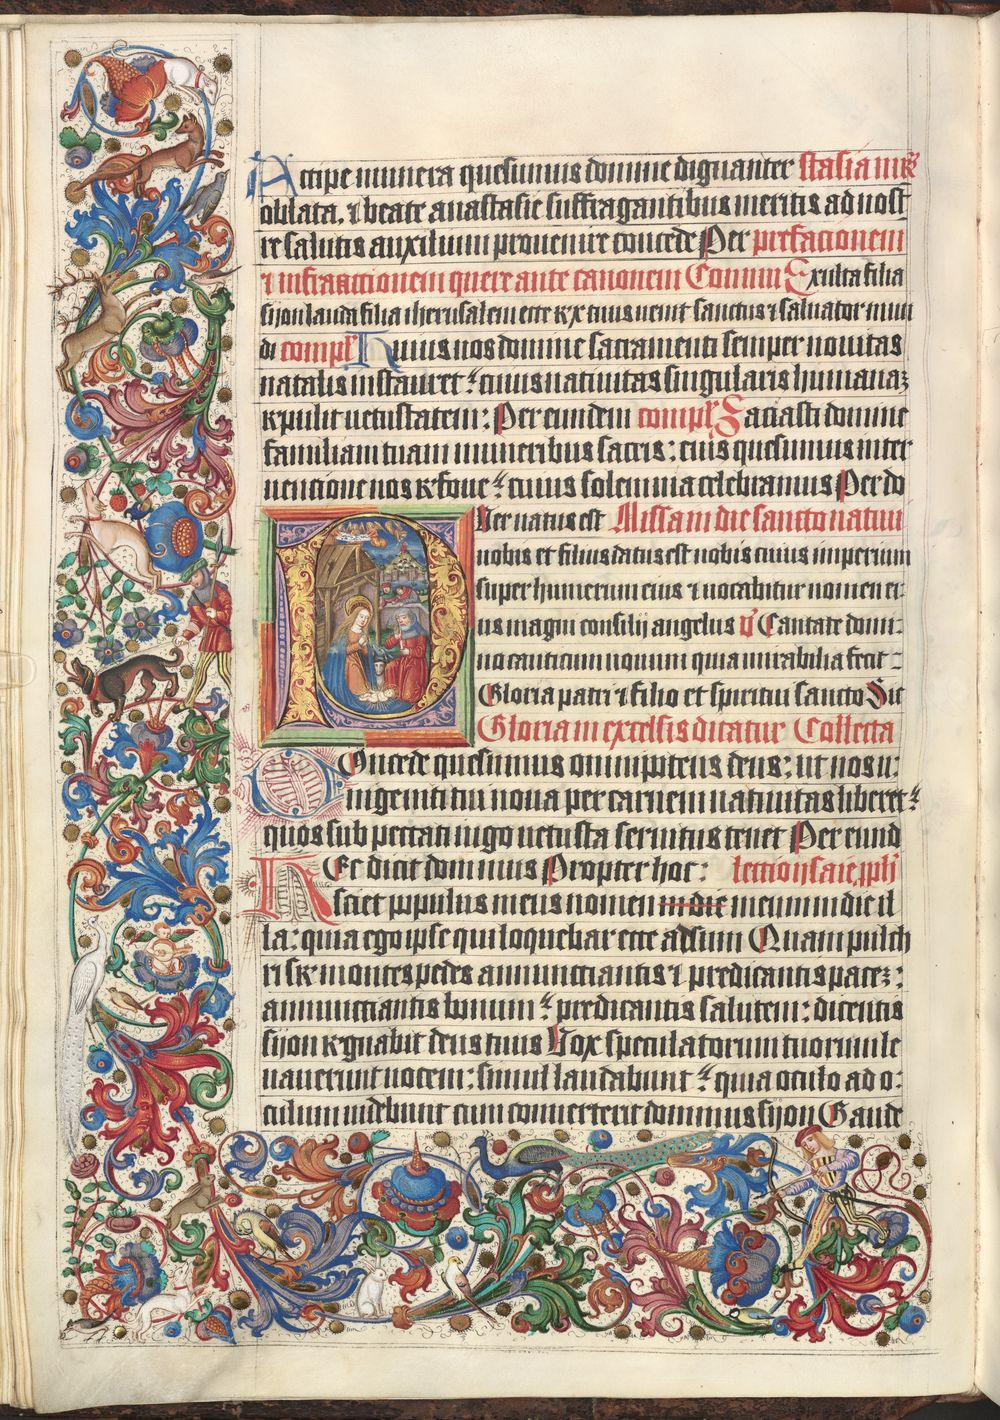 Accipe munera quesumus domine dignanter stasia mr̄
oblata. ⁊ beate anastasie suffragantibus meritis ad nost
re salutis auxilium provenire concede Per prefacionem
⁊ infraactionem quere ante canonem Commun Exulta filia
sijon lauda filia iherusalem ecce rex tuus uenit sanctus ⁊ saluator mun
di comple Huius nos domine sacramenti semper nouitas
natalis instauret: cuius natiuitas singularis humanaz
repulit uetustatem: Per eundem comple Saciasti domine
familiam tuam muneribus sacris: eius quesumus inter
uentione nos refoue: cuius solemnia celebramus Per do
Uer natus est Missa in die sancto natiui
nobis et filius datus est nobis cuius imperium
super humerum eius ⁊ uocabitur nomen ei-
us magni consilij angelus v̄ Cantate domi-
no canticum nouum quia mirabilia fecit-
Gloria patri ⁊ filio et spiritui sancto Sic
Gloria in excelsis dicatur Collecta
Concede quesumus omnipotens deus: ut nos u-
nigeniti tui noua per carnem natiuitas liberet:
quos sub peccati iugo uetusta seruitus tenet Per eund
Hec dicit dominus Propter hoc: lectio Isaie pph̄
sciet populus meus nomen in die meum in die il
la: quia ego ipse qui loquebar ecce adsum Quam pulch
ri sr montes pedes annunciantis ⁊ predicantis pacez:
annunciantis bonum: predicantis salutem: dicentis
sijon regnabit deus tuus Vox speculatorum tuorum le
uauerunt uocem: simul laudabunt: quia oculo ad o-
culum uidebunt cum conuerterit dominus sijon Gaude